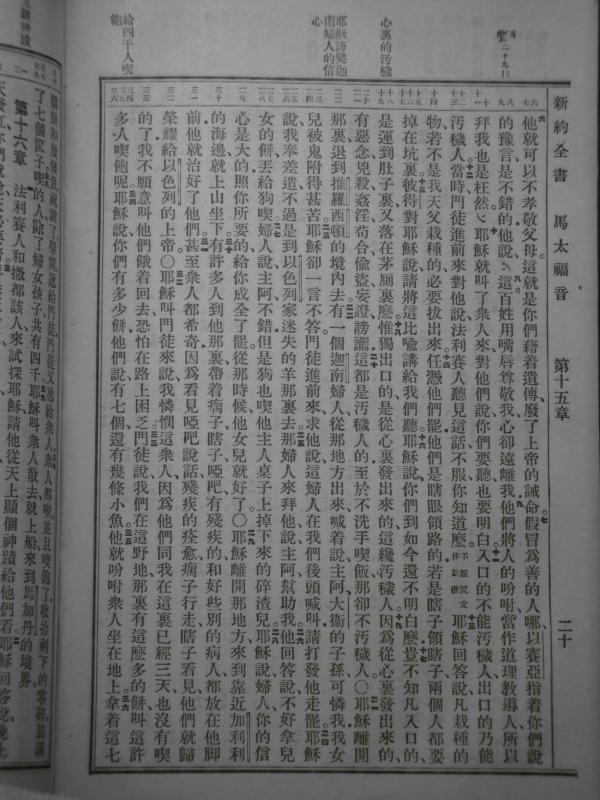 新約全書 馬太福音 第十五章 二十
賽二十九13
心裏的汚穢
耶穌誇獎迦
南婦人的信
心
給四千人喫
飽
他就可以不孝敬父母這就是你們藉着遺傳廢了上帝的誡命假冒爲善的人哪以賽亞指着你們說
的豫言是不錯的他說這百姓用嘴唇尊敬我心卻遠離我他們將人的吩咐當作道理教導人所以
拜我也是枉然耶穌就叫了衆人來對他們說你們要聽也要明白入口的不能汚穢人出口的乃能
汚穢人當時門徒進前來對他說法利賽人聽見這話不服你知道麽耶穌回答說凡栽種的
物若不是我天父栽種的必要拔出來任憑他們罷他們是瞎眼領路的若是瞎子領瞎子兩個人都要
掉在坑裏彼得對耶穌說請將這比喩講給我們聽耶穌說你們到如今還不明白麽豈不知凡入口的
是運到肚子裏又落在茅厠裏麽惟獨出口的是從心裏發出來的這纔汚穢人因爲從心裏發出來的
有惡念兇殺姦淫苟合偷盜妄證謗讟這都是汚穢人的至於不洗手喫飯那卻不汚穢人〇耶穌離開
那裏退到推羅西頓的境內去有一個迦南婦人從那地方出來喊着說主阿大衞的子孫可憐我我女
兒被鬼附得甚苦耶穌卻一言不答門徒進前來求他說這婦人在我們後頭喊叫請打發他走罷耶穌
說我奉差遣不過是到以色列家迷失的羊那裏去那婦人來拜他說主阿幫助我他回答說不好拿兒
女的餅丟給狗喫婦人說主阿不錯但是狗也喫他主人桌子上掉下來的碎渣兒耶穌說婦人你的信
心是大的照你所要的給你成全了罷從那時候他女兒就好了〇耶穌離開那地方來到靠近加利利
的海邊就上山坐下有許多人到他那裏帶着瘸子瞎子啞吧有殘疾的和好些別的病人都放在他脚
前他就治好了他們甚至衆人都希奇因爲看見啞吧說話殘疾的痊愈瘸子行走瞎子看見他們就歸
榮耀給以色列的上帝〇耶穌叫門徒來說我憐憫這衆人因爲他們同我在這裏已經三天也沒有喫
的了我不願意叫他們餓着回去恐怕在路上困乏門徒說我們在這野地那裏有這麽多的餅叫這許
多人喫飽呢耶穌說你們有多少餅他們說有七個還有幾條小魚他就吩咐衆人坐在地上拿着這七
了七個筐子喫的人除了婦女孩子共有四千耶穌叫衆人散去就上船來到馬加丹的境界
第十六章 法利賽人和撒都該人來試探耶穌請他從天上顯個神蹟給他們看耶穌回答說晚上